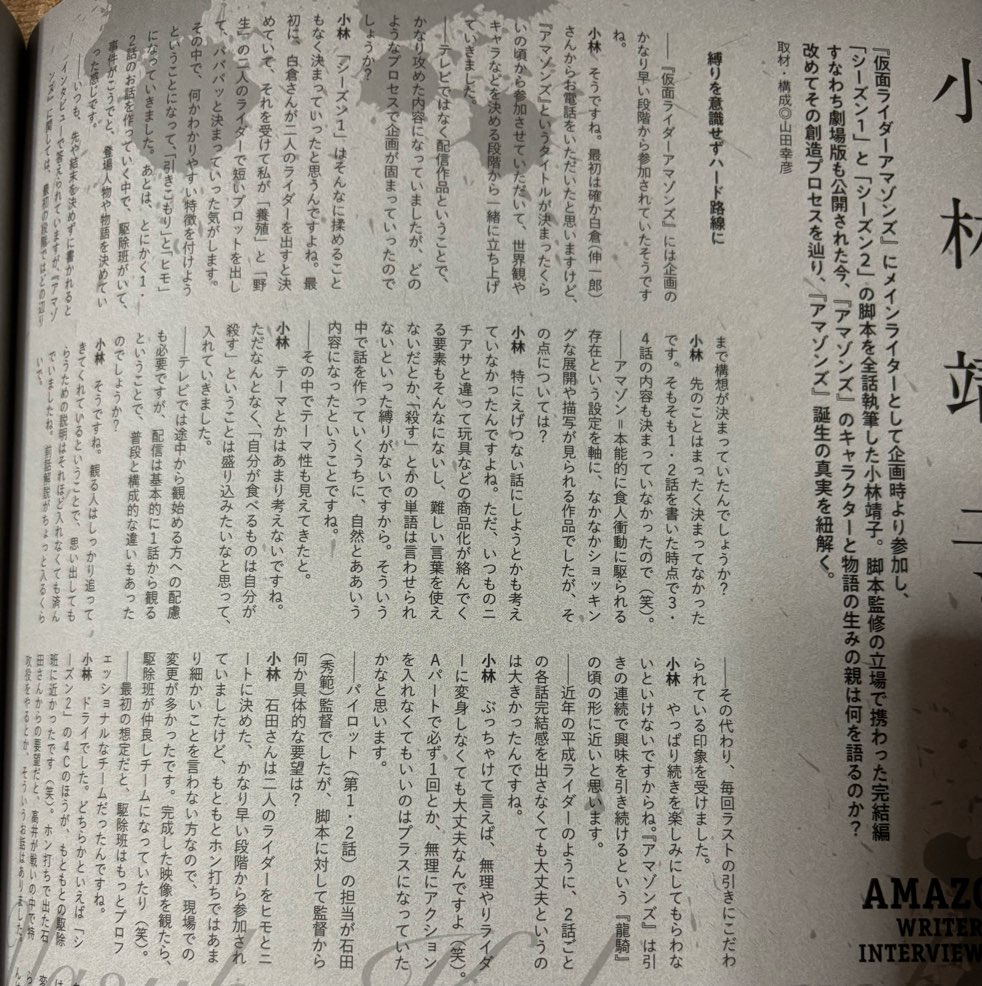 小林靖子
『仮面ライダーアマゾンズ』にメインライターとして企画時より参加し、
「シーズン1」と「シーズン2」の脚本を全話執筆した小林靖子。脚本監修の立場で携わった完結編
すなわち劇場版も公開された今、『アマゾンズ』のキャラクターと物語の生みの親は何を語るのか？
改めてその創造プロセスを辿り、『アマゾンズ』誕生の真実を紐解く。
取材・構成◎山田幸彦
AMAZO
WRITER
INTERVIEW
縛りを意識せずハード路線に
──『仮面ライダーアマゾンズ』には企画の
かなり早い段階から参加されていたそうです
ね。
小林　そうですね。最初は確か白倉（伸一郎）
さんからお電話をいただいたと思いますけど、
『アマゾンズ』というタイトルが決まったくら
いの頃から参加させていただいて、世界観や
キャラなどを決める段階から一緒に立ち上げ
ていきました。
──テレビではなく配信作品ということで、
かなり攻めた内容になっていましたが、どの
ようなプロセスで企画が固まっていったので
しょうか？
小林　「シーズン1」はそんなに揉めること
もなく決まっていったと思うんですよね。最
初に、白倉さんが二人のライダーを出すと決
めていて、それを受けて私が「養殖」と「野
生」の二人のライダーで短いプロットを出し
て、パパパッと決まっていった気がします。
その中で、何かわかりやすい特徴を付けよう
ということになって、「引きこもり」と「ヒモ」
になっていきました。あとは、とにかく1・
2話のお話を作っていく中で、駆除班がいて、
事件がこうでと、登場人物や物語を決めてい
った感じです。
──いつも、先や結末を決めずに書かれると
インタビューで答えられていますが、『アマゾ
ンズ』に関しては、最初の段階ではどの辺り
まで構想が決まっていたんでしょうか？
小林　先のことはまったく決まってなかった
です。そもそも1・2話を書いた時点で3・
4話の内容も決まっていなかったので（笑）。
──アマゾン＝本能的に食人衝動に駆られる
存在という設定を軸に、なかなかショッキン
グな展開や描写が見られる作品でしたが、そ
の点については？
小林　特にえげつない話にしようとかも考え
ていなかったんですよね。ただ、いつものニ
チアサと違って玩具などの商品化が絡んでく
る要素もそんなにないし、難しい言葉を使え
ないだとか、「殺す」とかの単語は言わせられ
ないといった縛りがないですから。そういう
中で話を作っていくうちに、自然とああいう
内容になったということですね。
──その中でテーマ性も見えてきたと。
小林　テーマとかはあまり考えないですね。
ただなんとなく、「自分が食べるものは自分が
殺す」ということは盛り込みたいなと思って、
入れていきました。
──テレビでは途中から観始める方への配慮
も必要ですが、配信は基本的に1話から観る
ということで、普段と構成的な違いもあった
のでしょうか？
小林　そうですね。観る人はしっかり追って
きてくれているということで、思い出しても
らうための説明はそれほど入れなくても済ん
でいましたね。前話解説がちょっと入るくら
いで。
──その代わり、毎回ラストの引きにこだわ
られている印象を受けました。
小林　やっぱり続きを楽しみにしてもらわな
いといけないですからね。『アマゾンズ』は引
きの連続で興味を引き続けるという『龍騎』
の頃の形に近いと思います。
──近年の平成ライダーのように、2話ごと
の各話完結感を出さなくても大丈夫というの
は大きかったんですね。
小林　ぶっちゃけて言えば、無理やりライダ
ーに変身しなくても大丈夫なんですよ（笑）。
Aパートで必ず1回とか、無理にアクション
を入れなくてもいいのはプラスになっていた
かなと思います。
──パイロット（第1・2話）の担当が石田
（秀範）監督でしたが、脚本に対して監督から
何か具体的な要望は？
小林　石田さんは二人のライダーをヒモとニ
ートに決めた、かなり早い段階から参加され
ていましたけど、もともとホン打ちではあま
り細かいことを言わない方なので、現場での
変更が多かったです。完成した映像を観たら、
駆除班が仲良しチームになっていたり（笑）。
──最初の想定だと、駆除班はもっとプロフ
ェッショナルなチームだったんですね。
小林　ドライでした。どちらかといえば「シ
ーズン2」の4Cのほうが、もともとの駆除
班に近かったです（笑）。ホン打ちで出た石
田さんからの要望だと、高井が戦いの中で特